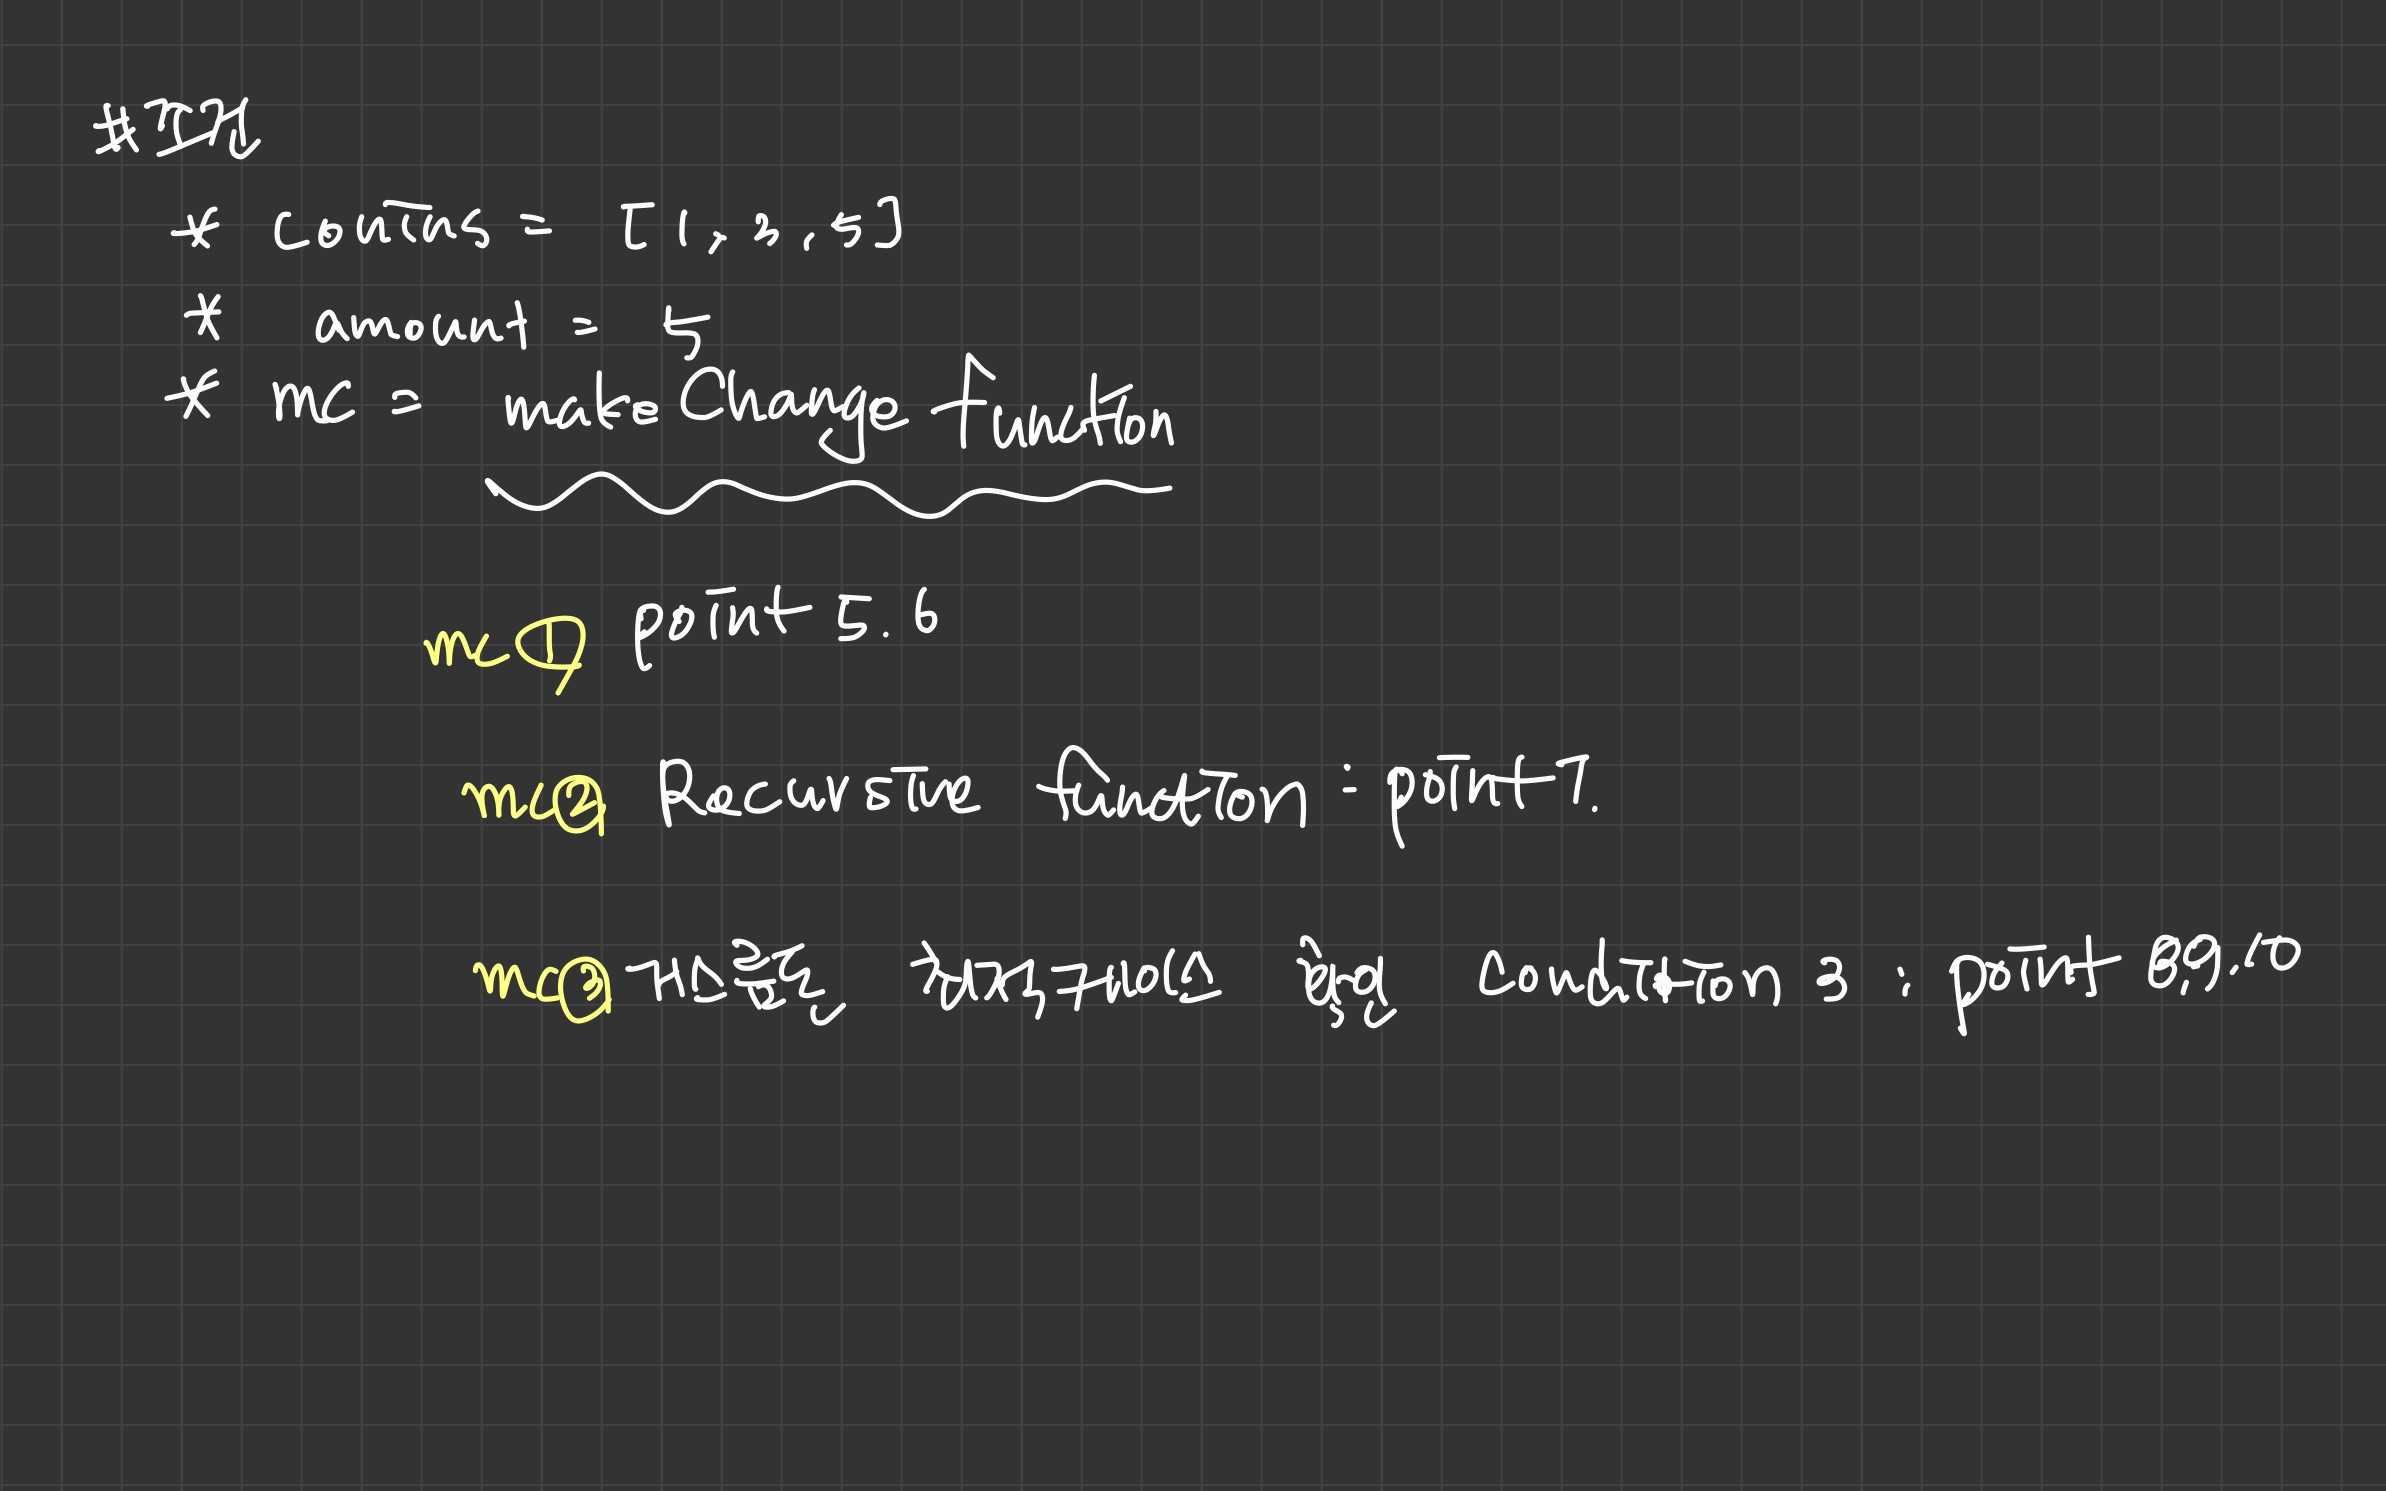 #조건
* conins = [1, 2, 5]
* amount = 5
* mc = makeChange function
mc① point 5.6
mc② Recursive function : point 7.
mc③ condition 3 : point 8,9,10